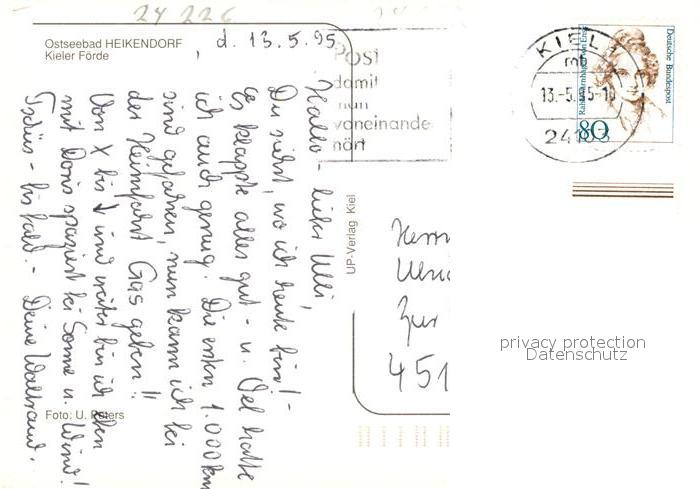 24 226
Ostseebad HEIKENDORF
Kieler Förde
d. 13.5.95
Hallo - lieber Ulli,
Du siehst, wo ich heute bin! -
Es klappte alles gut - u. Oel hatte
ich auch genug. Die ersten 1.000 km
sind gefahren, nun kann ich bei
der Heimfahrt Gas geben!!
Von X bis Y und weiter bin ich eben
mit Doris spaziert bei Sonne u. Wind!
Tschüs - bis bald. - Deine Waltraud.
Foto: U. Peters
UP-Verlag Kiel
Post
damit
man
voneinande
hört
KIEL 1
mb
13.-5.95-1
24103
Deutsche Bundespost
Rahel Varnhagen von Ense
80
Herrn
Ulric
Zur
451
privacy protection
Datenschutz